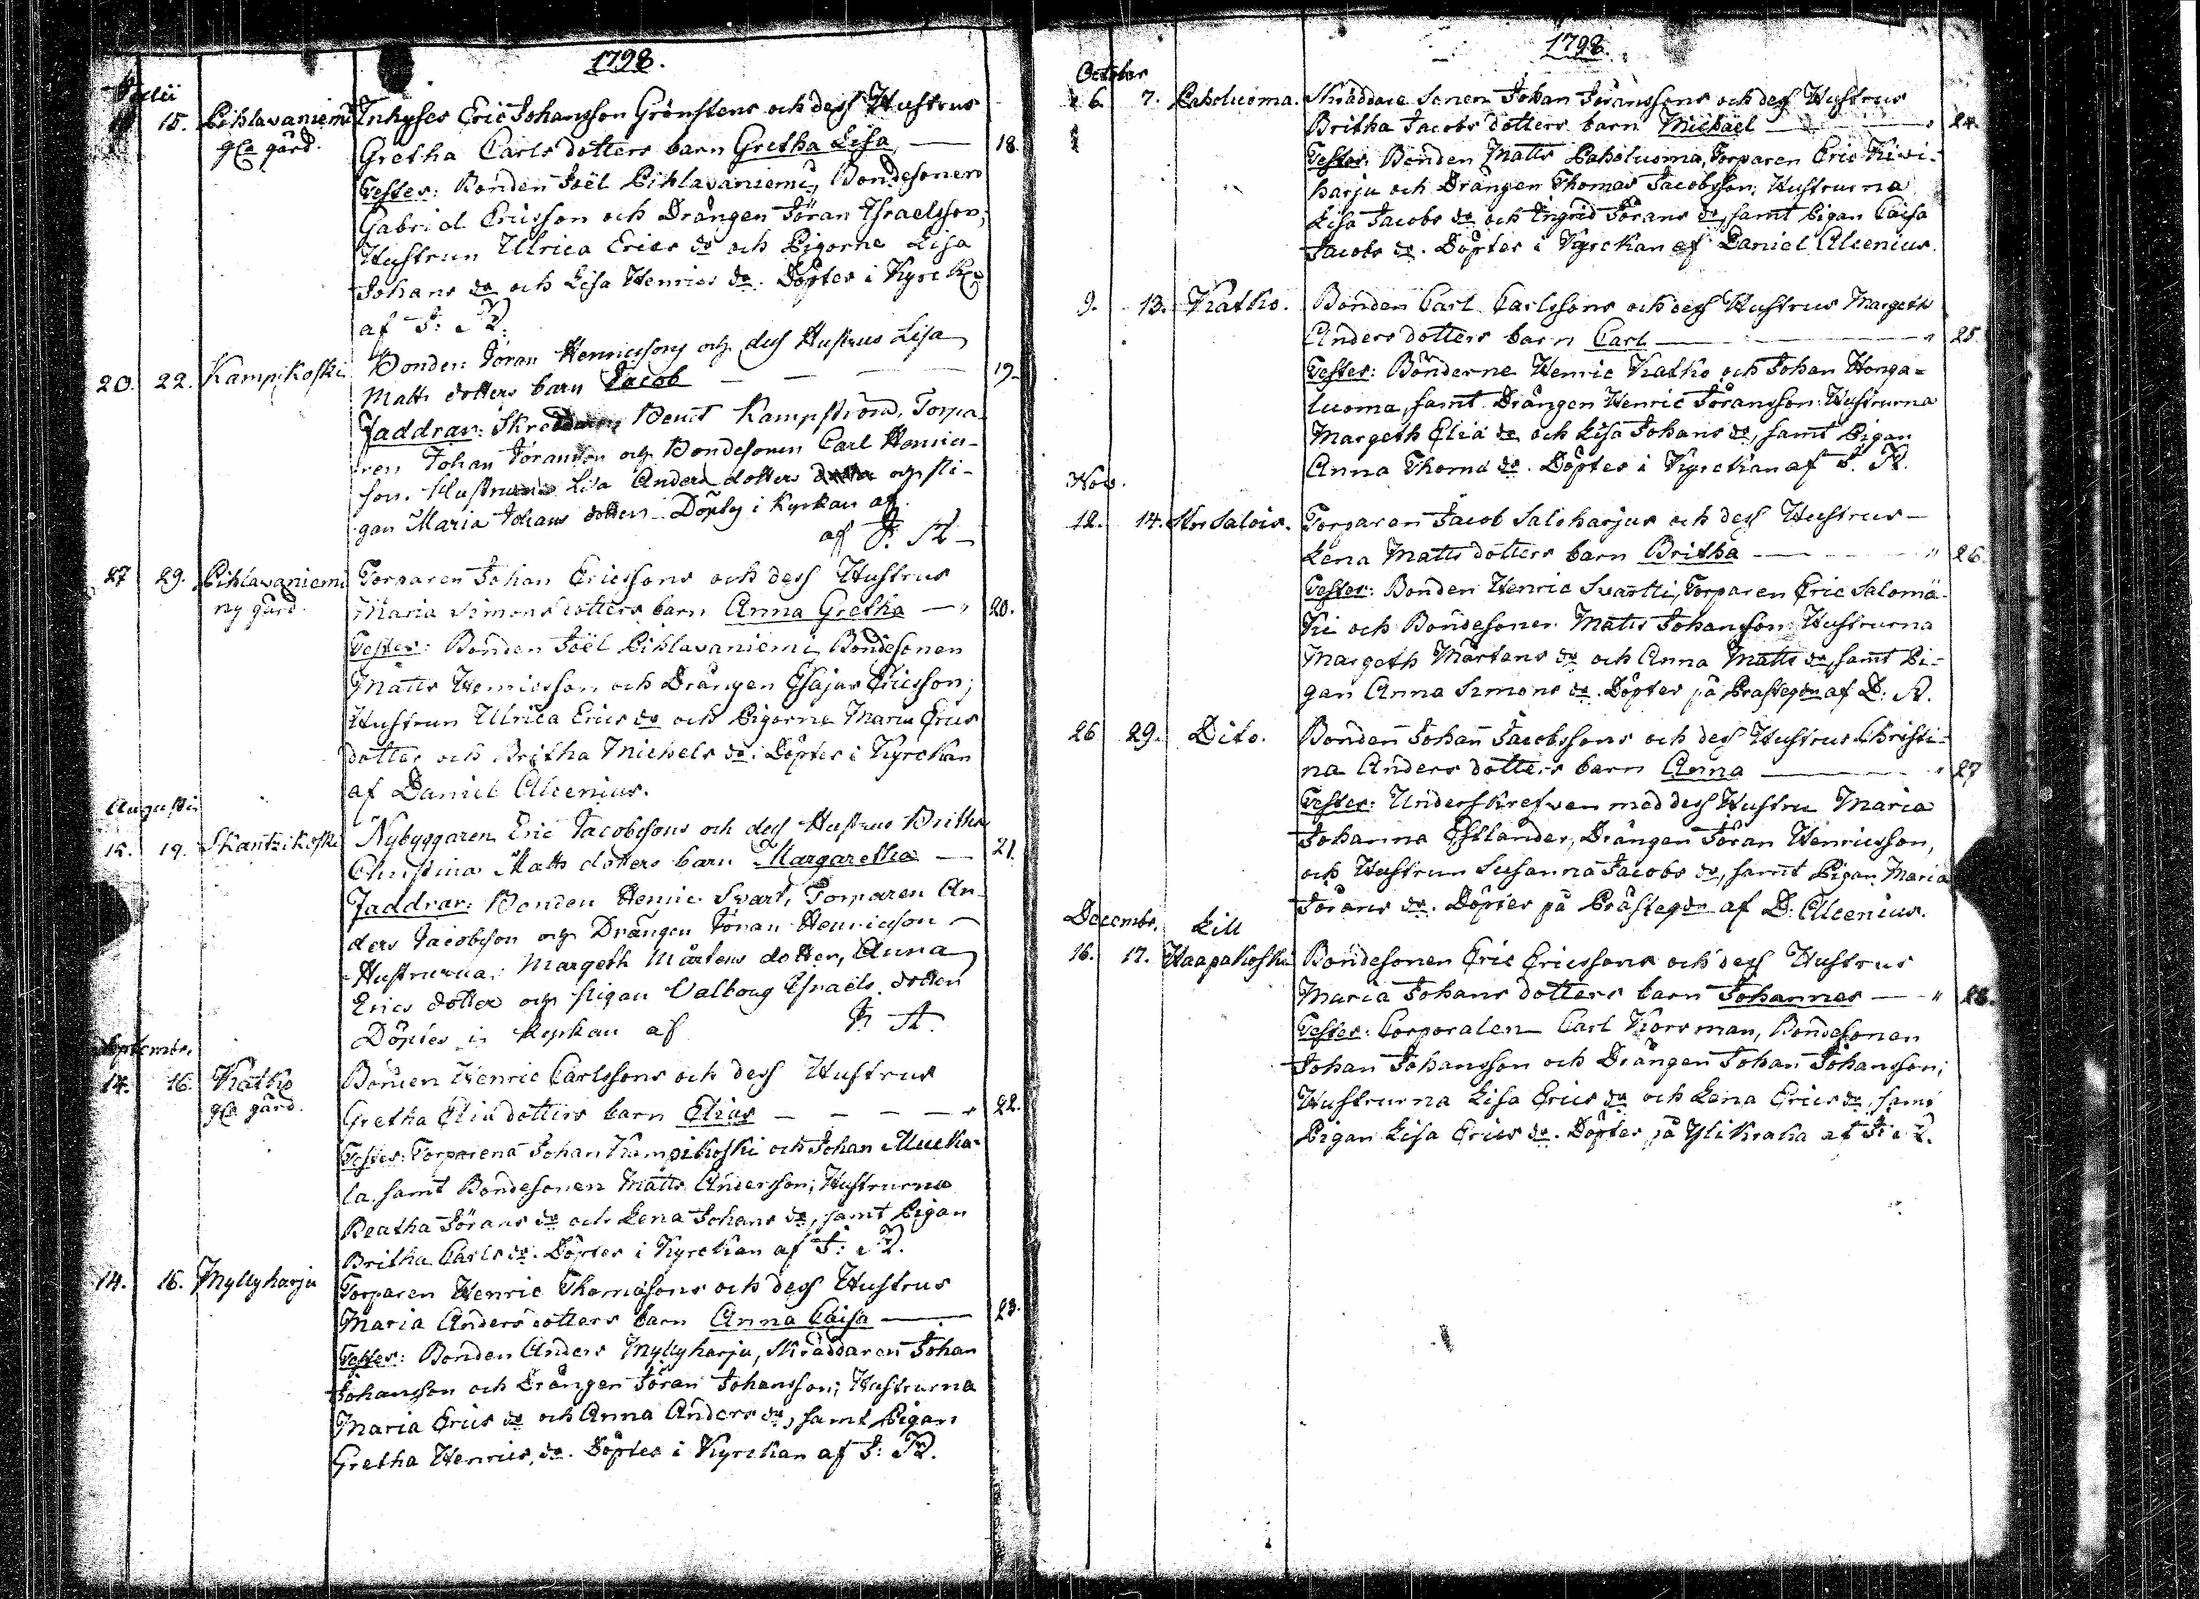 1798.
Julii
15. Pihlavaniemi Inhyses Eric Johansson Grönstens och dess Hustrus
gla gård. Gretha Carls dotters barn Gretha Lisa — 18.
Testes: Bonden Joël Pihlavaniemi, Bondesonen
Gabriel Ericsson och Drängen Jöran Israelsson;
Hustrun Ulrica Erics do och Pigorne Lisa
Johans do och Lisa Henrics do. Döptes i Kyrck:
af J: R.
20. 22. Kampikoski Bonden Jöran Henricssons och dess Hustrus Lisa
Matts dotters barn Jacob — — — 19.
Faddrar: Bengt Kampström, Torpa-
ren Johan Jöransson och Bondesonen Carl Henrics-
son. Lisa Anders dotter och Pi-
gan Maria Johans dotter. Döptes i Kyrkan af
af J. R.
27 29. Pihlavaniemi Torparen Johan Ericssons och dess Hustrus
ny gård. Maria Simons dotters barn Anna Gretha — " 20.
Testes: Bonden Joël Pihlavaniemi, Bondesonen
Matts Henricsson och Drängen Esajas Ericsson;
Hustrun Ulrica Erics do och Pigorne Maria Erics
dotter och Britha Michels do. Döptes i Kyrckan
af Daniel Alcenius.
Augusti
15. 19. Skantzikoski Nybyggaren Eric Jacobssons och dess Hustrus Britha
Christina Matts dotters barn Margaretha — 21.
Faddrar: Bonden Henric Svart, Torparen An-
ders Jacobsson och Drängen Jöran Henricsson
Hustrurna: Margeth Mårtens dotter, Anna
Erics dotter och Pigan Valborg Israels dotter
Döptes i Kyrkan af
Septembr.
14. 16. Katko Bonden Henric Carlssons och dess Hustrus
gla gård. Gretha Eliæ dotters barn Elias — — — — " 22.
Testes: Torparena Johan Kampikoski och Johan Mucka-
la, samt Bondesonen Matts Andersson; Hustrurna
Beatha Jörans do och Lena Johans do, samt Pigan
Britha Carls do. Döptes i Kyrckan af J: R.
14. 16. Myllyharju Torparen Henric Thomassons och dess Hustrus
Maria Anders dotters barn Anna Caisa — 23.
Testes: Bonden Anders Myllyharju, Skräddaren Johan
Johansson och Drängen Jöran Johansson; Hustrurna
Maria Erics do och Anna Anders do, samt Pigan
Gretha Henrics do. Döptes i Kyrckan af J: R.
1798.
October
6. 7. Paholuoma. Skräddare Sonen Johan Jöranssons och dess Hustrus
Britha Jacobs dotters barn Michaël — " 24.
Testes: Bonden Matts Paholuoma, Torparen Eric Kivi-
harju och Drängen Thomas Jacobsson; Hustrurna
Lisa Jacobs do och Ingrid Jörans do, samt Pigan Caisa
Jacobs do. Döptes i Kyrckan af Daniel Alcenius.
9. 13. Katko. Bonden Carl Carlssons och dess Hustrus Margeth
Anders dotters barn Carl — " 25
Testes: Bönderne Henric Katko och Johan Honga-
luoma, samt Drängen Henric Jöransson: Hustrurna
Margeth Eliæ do och Lisa Johans do, samt Pigan
Anna Thomæ do. Döptes i Kyrckan af J. R.
Nov.
12. 14. Stor Salois. Torparen Jacob Saloharjus och dess Hustrus —
Lena Matts dotters barn Britha — " 26
Testes: Bonden Henric Svartti, Torparen Eric Salomä-
ki och Bondesonen Matts Johansson: Hustrurna
Margeth Mårtens do och Anna Matts do, samt Pi-
gan Anna Simons do. Döptes på Prästegdn af D: A.
26 29. Dito. Bonden Johan Jacobssons och dess Hustrus Christi-
na Anders dotters barn Anna — " 27
Testes: Underskrefven med dess Hustru Maria
Johanna Estlander, Drängen Jöran Henricsson,
och Hustrun Susanna Jacobs do, samt Pigan Maria
Jörans do. Döptes på Prästegdn af D: Alcenius.
Decembr. Lill
16. 17. Haapakoski Bondesonen Eric Ericssons och dess Hustrus
Maria Johans dotters barn Johannes — " 28.
Testes: Corporalen Carl Korsman, Bondesonen
Johan Johansson och Drängen Johan Johansson;
Hustrurna Lisa Erics do och Lena Erics do, samt
Pigan Lisa Erics do. Döptes på Ylikraka af J: R.